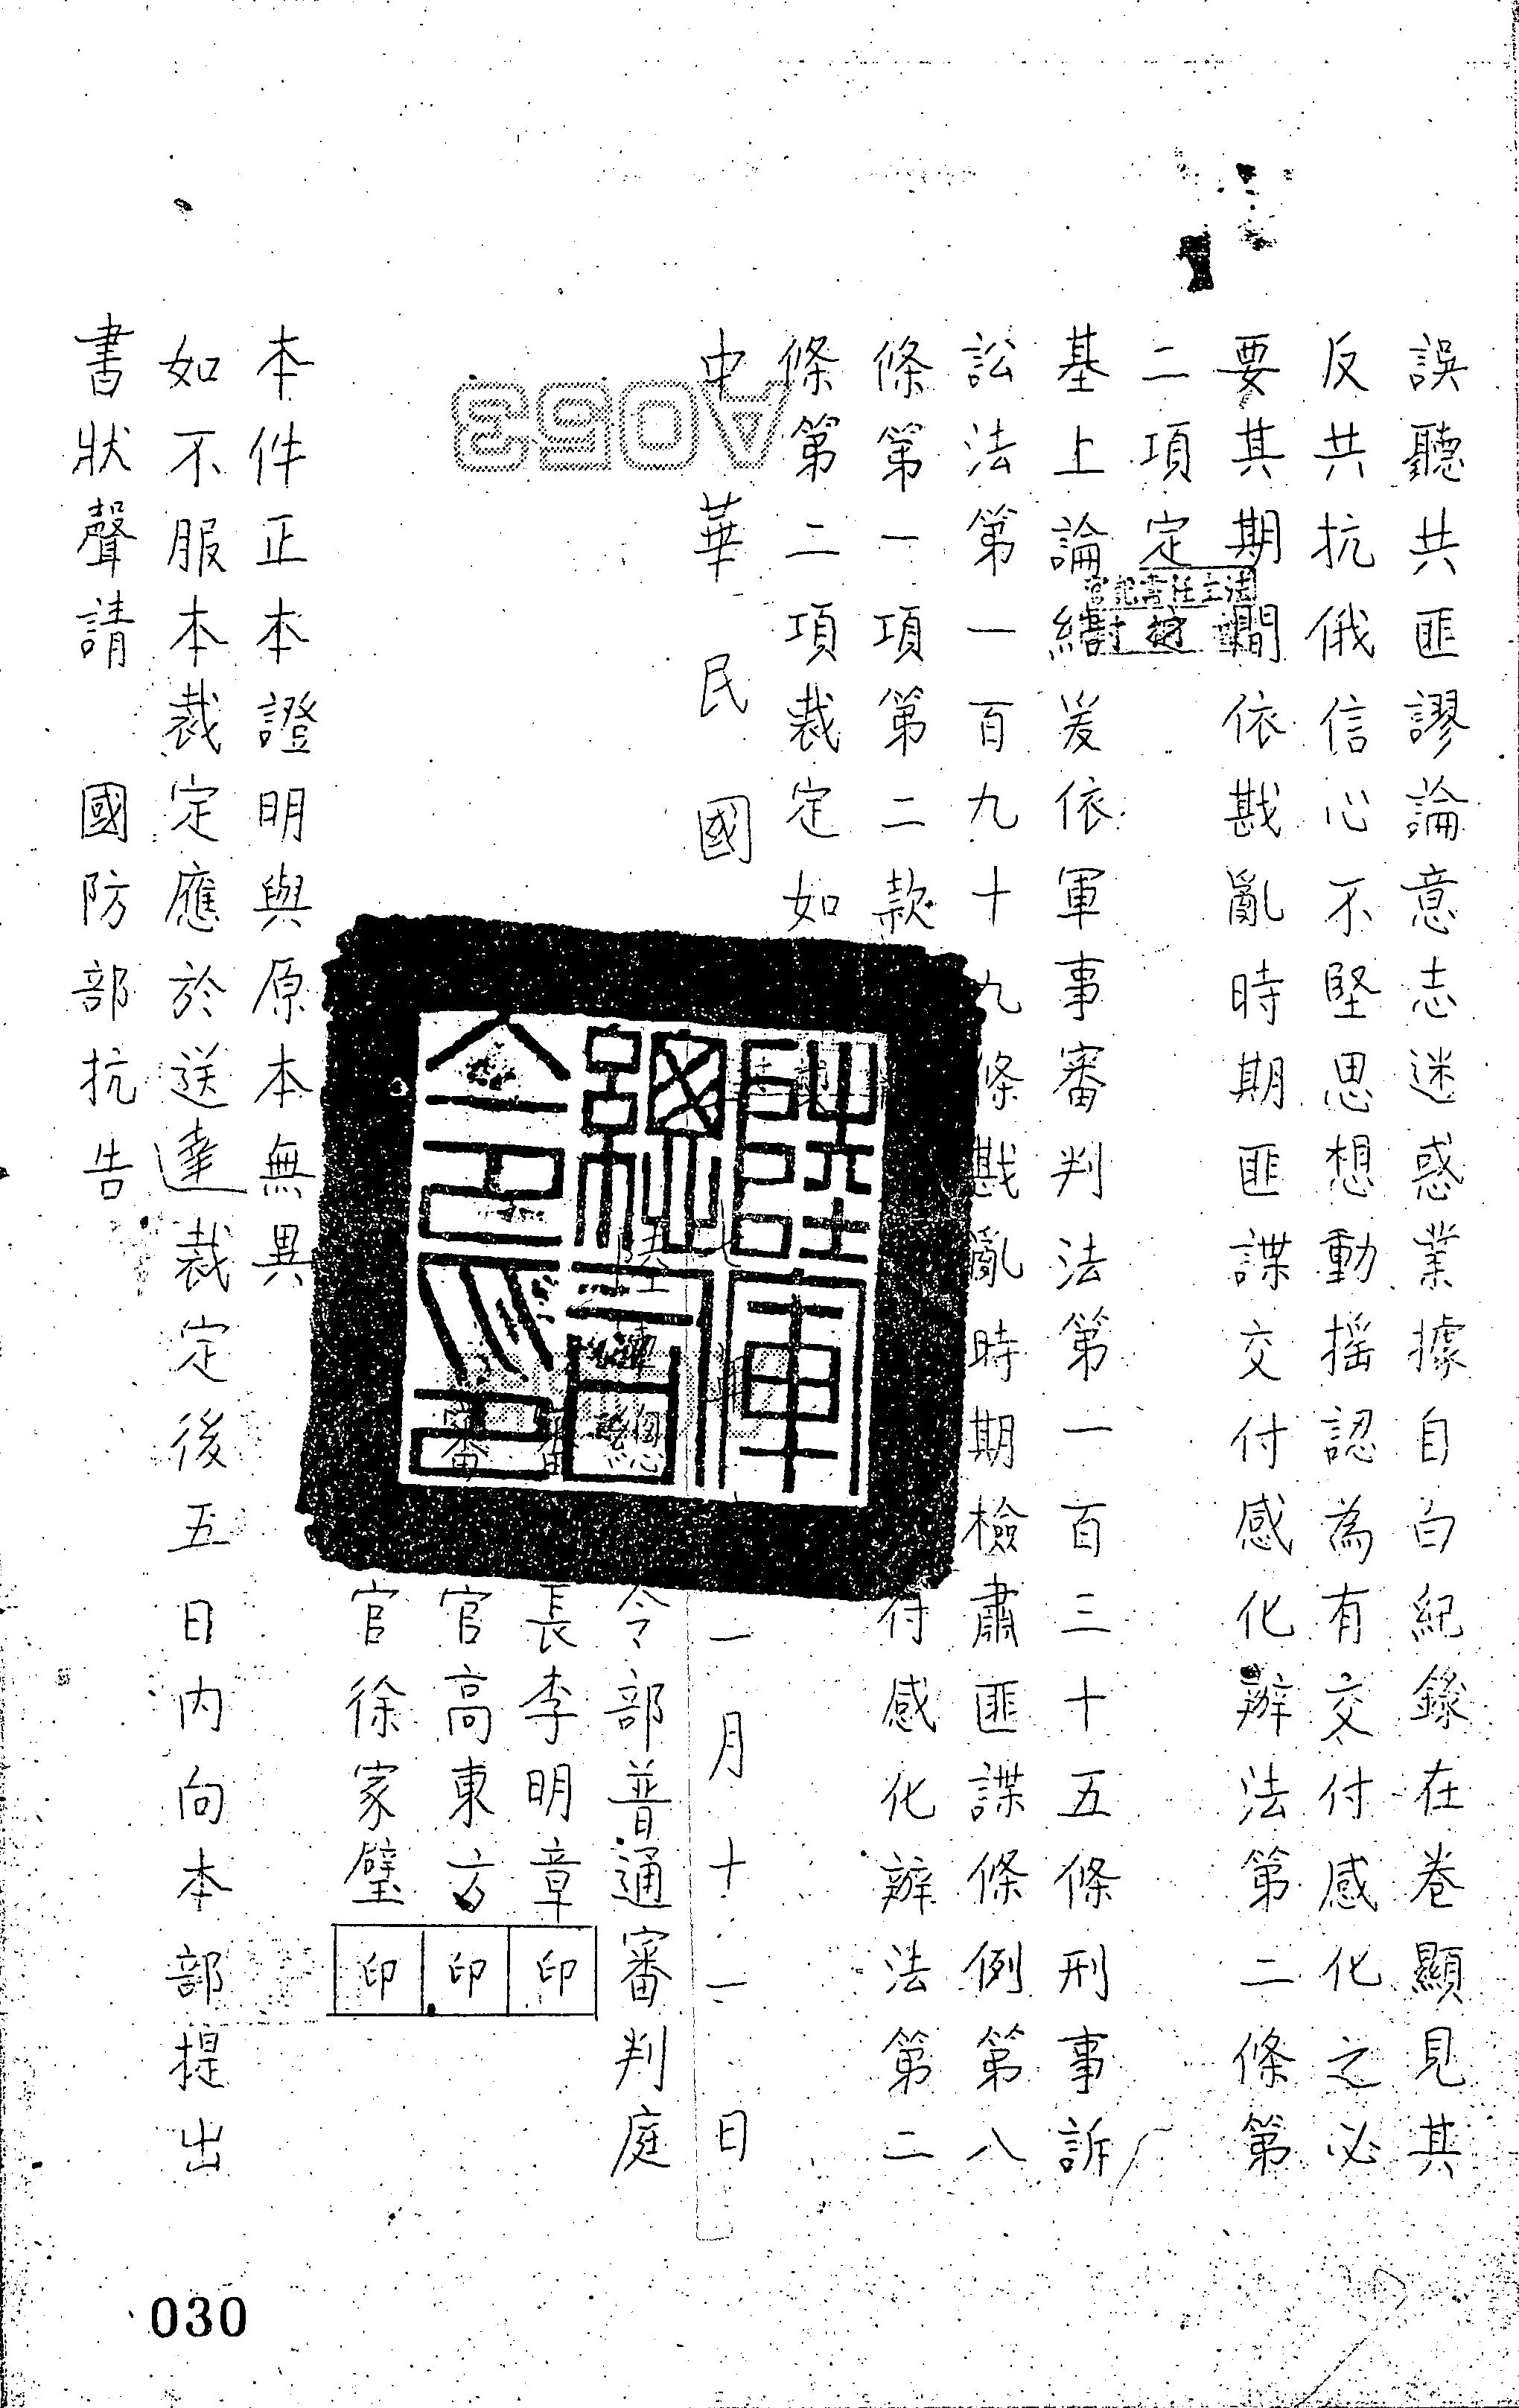 誤聽共匪謬論意志迷惑業據自白紀錄在卷顯見其
反共抗俄信心不堅思想動搖認為有交付感化之必
要其期間依戡亂時期匪諜交付感化辦法第二條第
二項定
基上論結爰依軍事審判法第一百三十五條刑事訴
訟法第一百九十九條戡亂時期檢肅匪諜條例第八
條第一項第二款付感化辦法第二
條第二項裁定如
中華民國一月十一日
總令部普通審判庭
審長李明章印
審官高東方印
官徐家璧印
本件正本證明與原本無異
如不服本裁定應於送達裁定後五日內向本部提出
書狀聲請 國防部抗告
陸軍總司令印
A053
030